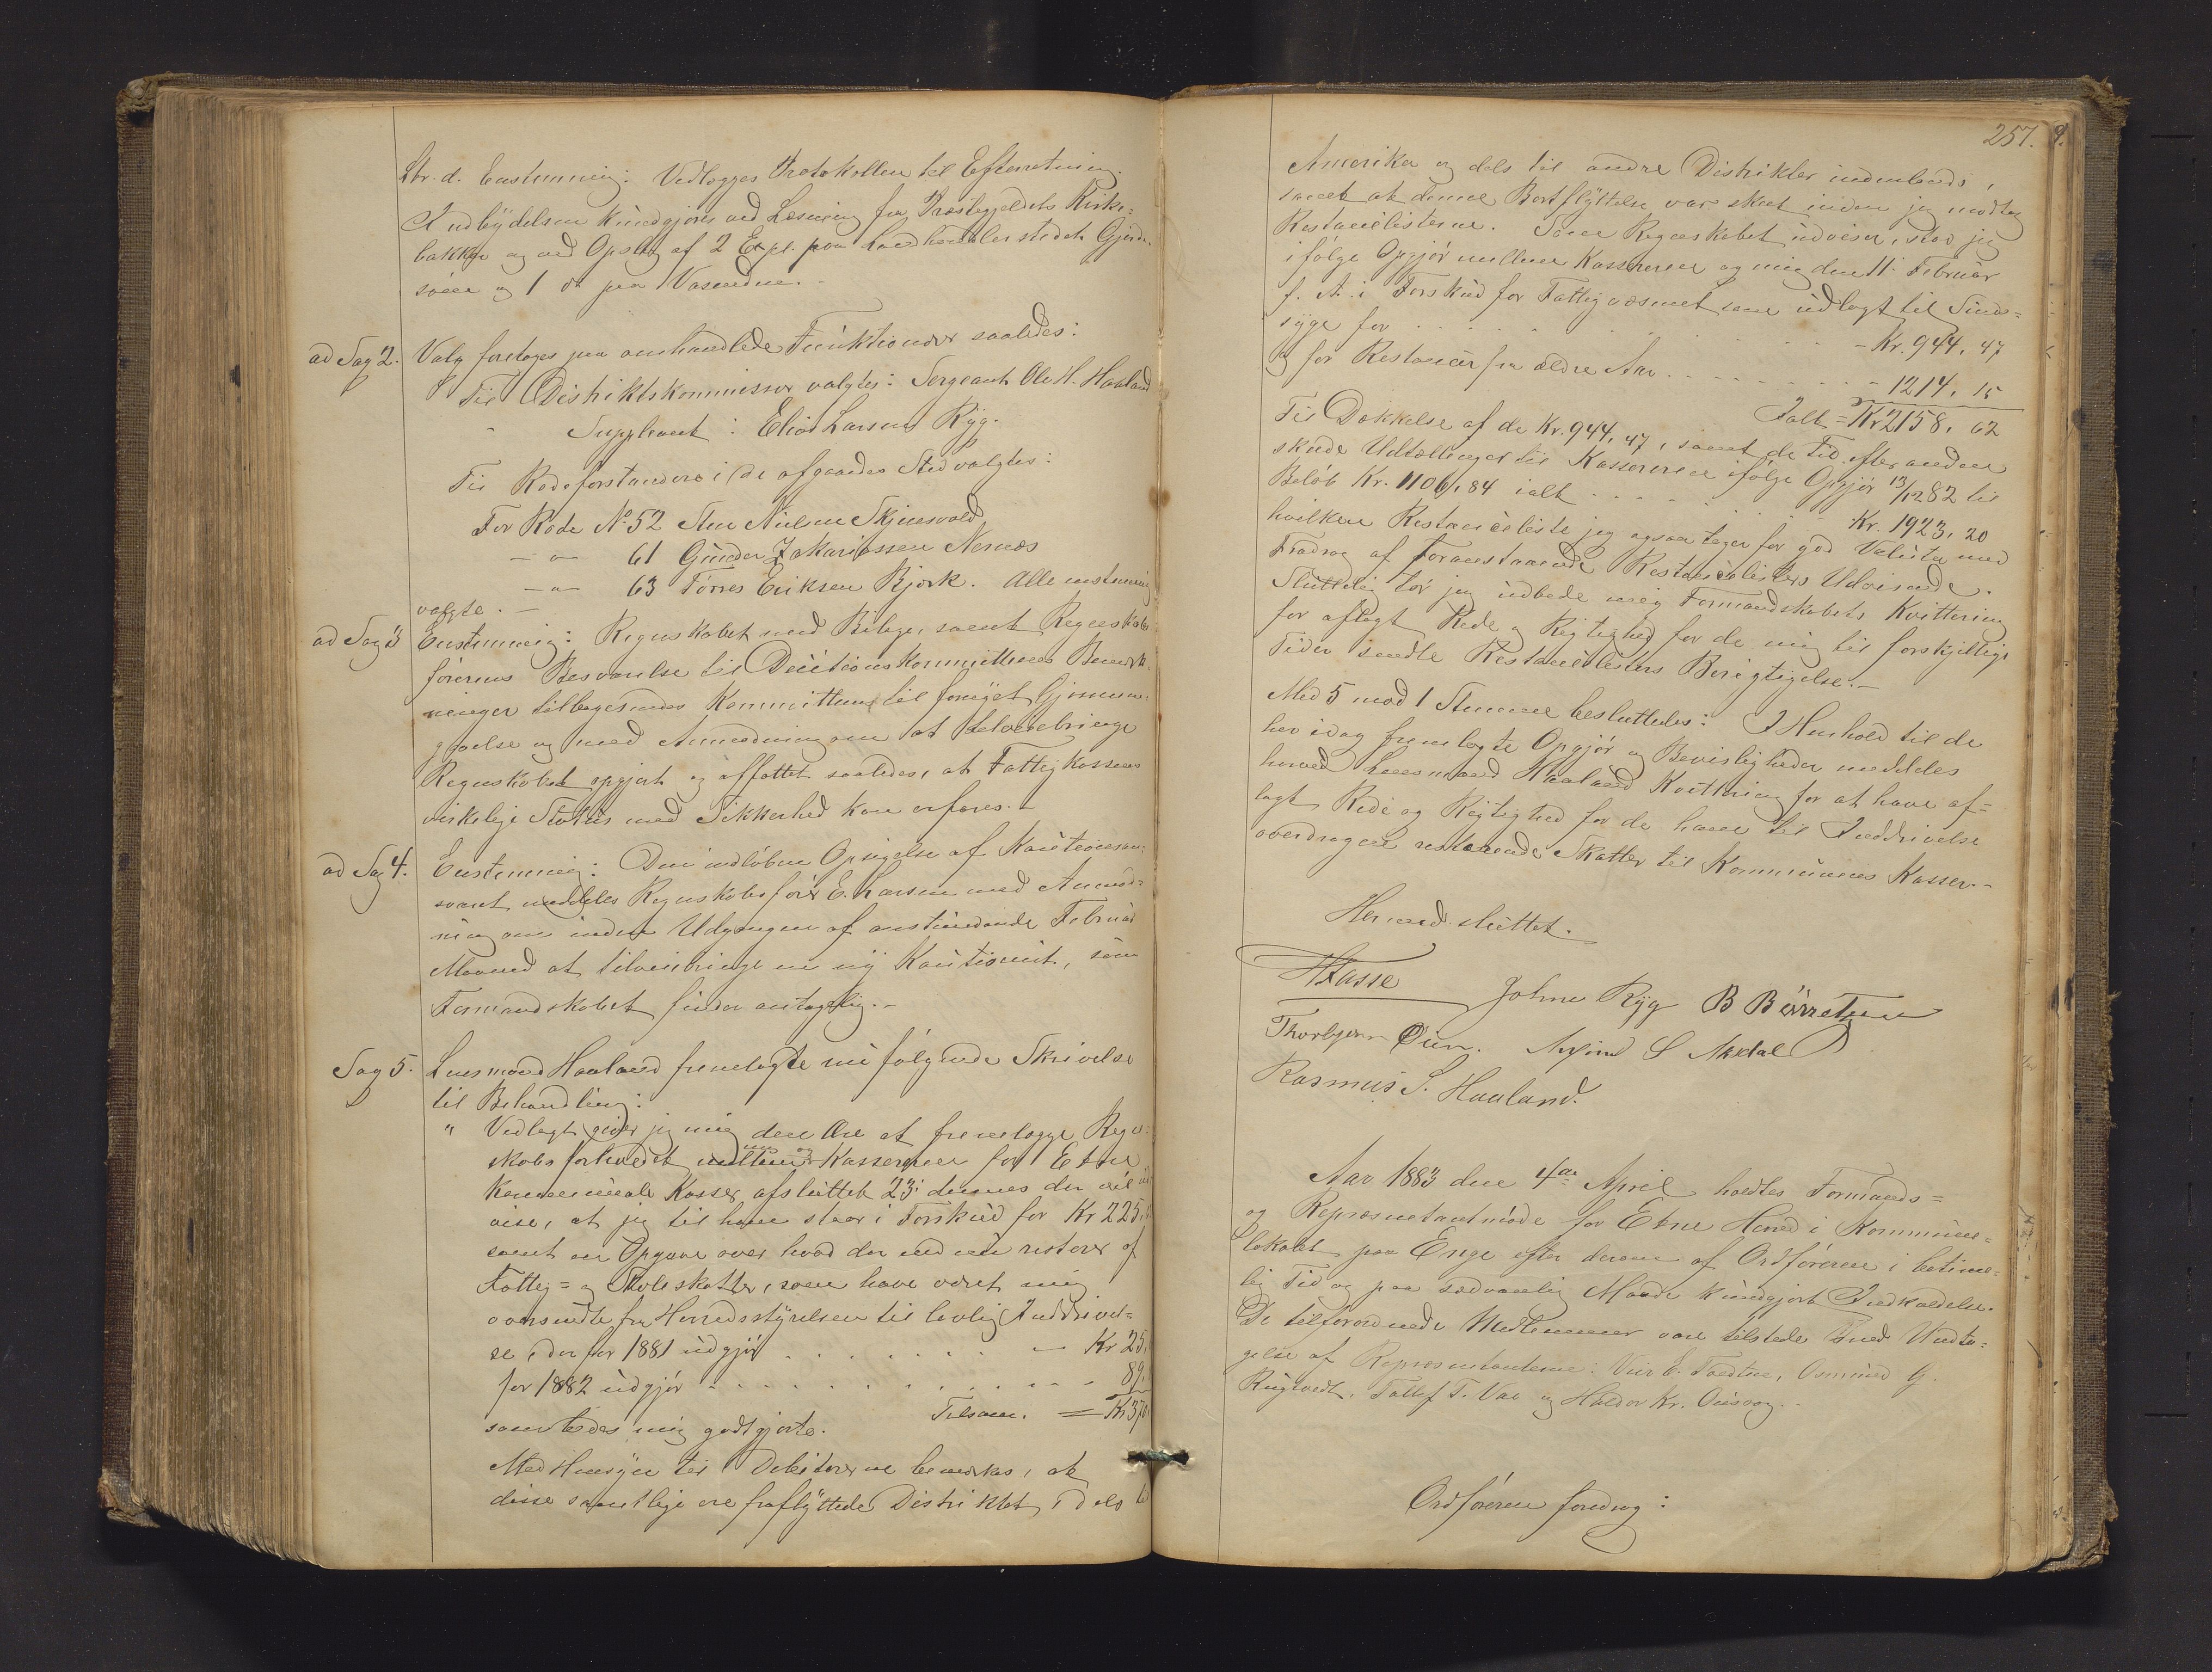 Ltr. d. Enstemmig: Vedlægges Protokollen til Efterretning.
Indbydelsen kundgjøres ved Læsning fra Præstegjeldets Kirke-
bakker og ved Opslag af 2 Expl. paa Landhandlerstedet Gjerde-
søen og 1 do paa Vasendne.
ad Sag 2. Valg foretages paa omhandlede Funktioner saaledes:
Til Distriktskommissær valgtes: Sergeant Ole H. Haaland
" Suppleant: Elias Larsen Ryg.
Til Rodeforstandere i de afgaaedes Sted valgtes:
For Rode No. 52 Sten Nielsen Skjensvold
- " - 61 Gunder Zakariassen Nernæs
- " - 63 Tørres Eriksen Bjørk. Alle enstemmig
valgte. -
ad Sag 3 Enstemmig: Regnskabet med Bilage, samt Regnskabs-
førerens Besvarelse til Decisionskommitteens Bemærk-
ninger tilbagesendes Kommitteen til fornyet Gjennem-
gaaelse og med Anmodning om at tilveiebringe
Regnskabet opgjort og affattet saaledes, at Fattigkassens
virkelige Status med Sikkerhed kan erfares. -
ad Sag 4. Enstemmig: Den indløbne Opsigelse af Kautionsan-
svaret meddeles Regnskabsfører E. Larsen med Anmod-
ning om inden Udgangen af anstundende Februar
Maaned at tilveiebringe en ny Kautionist, som
Formandskabet finder antagelig. -
Sag 5. Lensmand Haaland fremlagde nu følgende Skrivelse
til Behandling:
" Vedlagt giver jeg mig den Ære at fremlægge Regn-
skabsforholdet mellem mig og Kassereren for Etne
kommunale Kasser, afsluttet 23: dennes der vil ud-
vise, at jeg til ham staar i Forskud for Kr 225,
samt en Opgave over hvad der end nu resterer af
Fattig- og Skoleskatter, som have været mig
oversendte fra Herredsstyrelsen til lovlig Inddrivel-
se, der for 1881 udgjør . . . . . . . - Kr 25,
for 1882 udgjør - . . . . . . . . . - - - 89,
Tilsam. = Kr 370,
som bedes mig godtgjorte.
Med Hensyn til Debitorerne bemærkes, at
disse samtlige ere fraflyttede Distriktet, dels til
257.
Amerika og dels til andre Distrikter indenlands,
samt at denne Bortflyttelse var skeet inden jeg modtog
Restancelisterne. Som Regnskabet udviser, stod jeg
ifølge Opgjør mellem Kassereren og mig den 11. Februar
f. A. i Forskud for Fattigvæsenet som udlagt til Sinds-
syge for . . . . . . . . . . . - Kr. 944, 47
og for Restancer fra ældre Aar . . - - - - - - - 1214, 15
Ialt = Kr 2158, 62
Til Dækkelse af de Kr. 944, 47, samt de Tid efter anden
skeede Udtællinger til Kassereren ifølge Opgjør 13/12 82 til
Beløb Kr. 1106, 84 ialt . . . - . . . . - Kr. 1923, 20
hvilken Restanceliste jeg ogsaa tager for god Valuta med
Fradrag af foranstaaende Restancelisters Udvisende.
Sluttelig tør jeg udbede mig Formandskabets Kvittering
for aflagt Rede og Rigtighed for de mig til forskjellige
Tider sendte Restancelisters Berigtigelse. -
Med 5 mod 1 Stemme besluttedes: I Henhold til de
her idag fremlagte Opgjør og Bevisligheder meddeles
herved Lensmand Haaland Kvittering for at have af-
lagt Rede og Rigtighed for de ham til Inddrivelse
overdragne resterende Skatter til Kommunens Kasser. -
Hermed sluttet.
HFasse Johne Ryg B Børretsen
Thorbjørn Øien. Arfind S Mæhdal
Rasmus S. Haaland.
Aar 1883 den 4de April holdtes Formands-
og Repræsentantmøde for Etne Herred i Kommune-
lokalet paa Enge efter derom af Ordføreren i betime-
lig Tid og paa sædvanlig Maade kundgjort Indkaldelse.
De tilforordnede Medlemmer vare tilstede med Undta-
gelse af Repræsentanterne: Iver E. Tvedtne, Osmund G.
Rygtvedt, Tollef T. Vae og Haldor Kr. Øiisvog. -
Ordføreren foredrog: